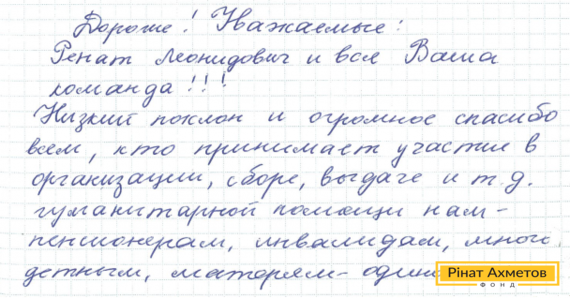 Дорогие! Уважаемые:
Ренат Леонидович и вся Ваша
команда!!!
Низкий поклон и огромное спасибо
всем, кто принимает участие в
организации, сборе, выдаче и т.д.
гуманитарной помощи нам-
пенсионерам, инвалидам, много
детным, матерям-
Рінат Ахметов
ФОНД